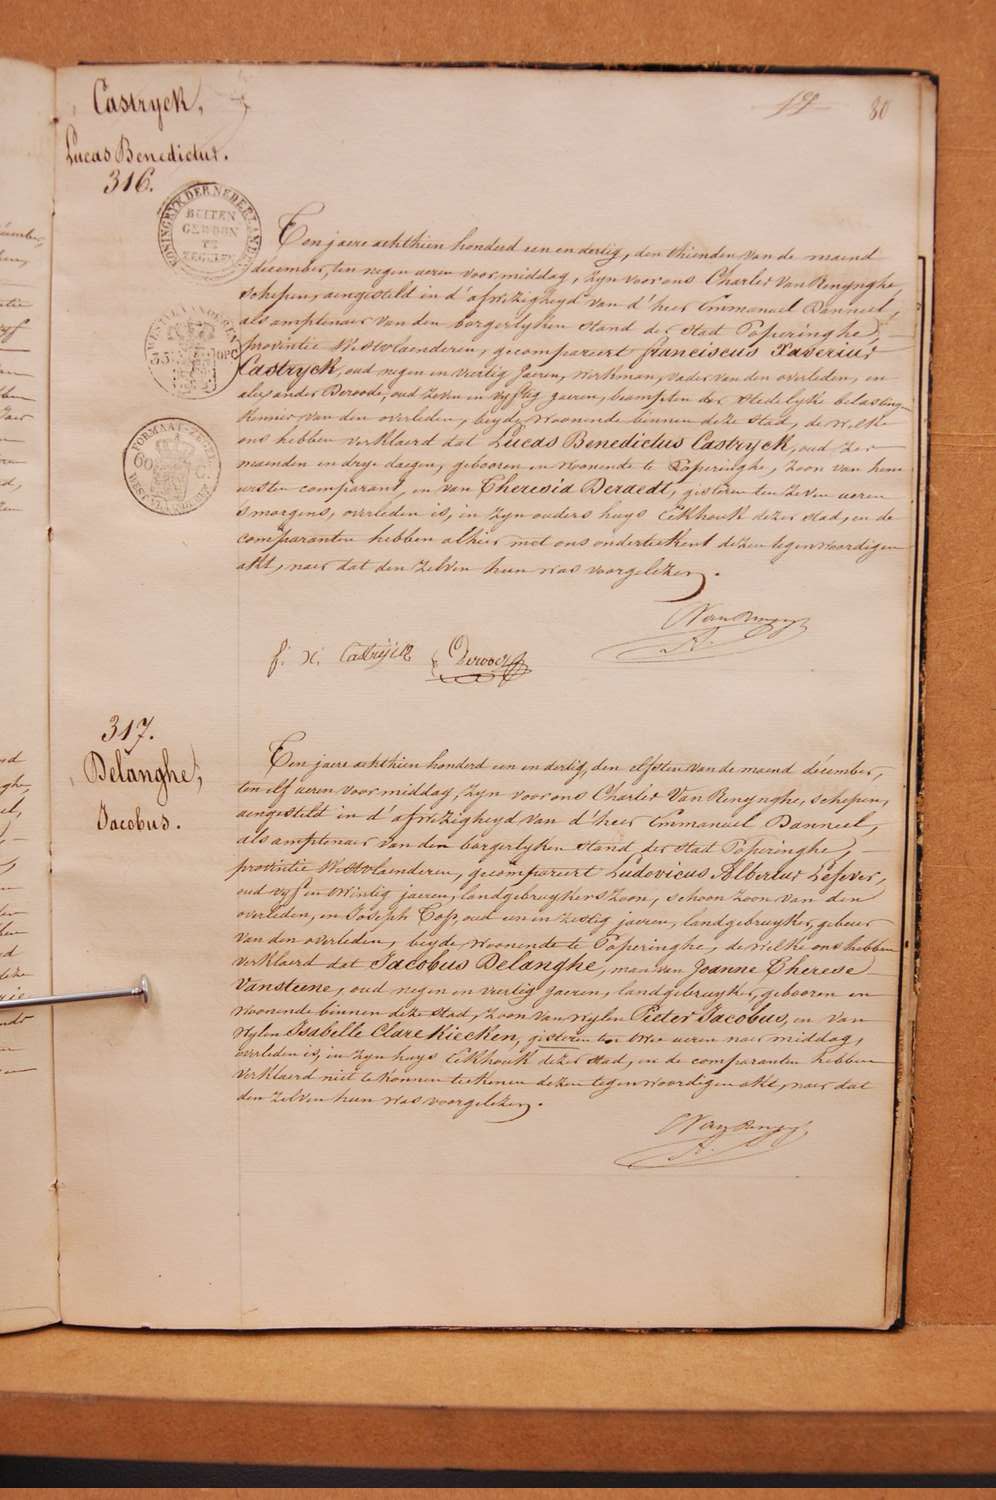 Castryck,
Lucas Benedictus.
316.
19 80
KONINGRYK DER NEDERLANDEN
BUITEN
GEWOON
TE
ZEGELEN
WESTVLAANDEREN
33 OPC
FORMAAT-ZEGEL
60 C
WEST VLAANDEREN
Ten jaere achthien honderd een en dertig, den thienden van de maend
décember, ten negen ueren voor middag, zyn voor ons Charles Van Renynghe,
schepen, aengesteld in d'afwezigheyd van d'heer Emmanuel Danneel,
als amptenaer van den borgerlyken stand der stad Poperinghe,
provintie Westvlaenderen, gecompareert franciscus Xaverius
Castryck, oud negen en viertig jaeren, werkman, vader van den overleden, en
alexander Deroode, oud zeven en vyftig jaeren, beampten der stedelyke belasting
kenner van den overleden, beyde woonende binnen deze stad, de welke
ons hebben verklaerd dat Lucas Benedictus Castryck, oud zes
maenden en drye daegen, gebooren en woonende te Poperinghe, zoon van hem
eersten comparant, en van Theresia Deraedt, gisteren ten zeven ueren
s'morgens, overleden is, in zyn ouders huys Eekhouk dezer stad, en de
comparanten hebben alhier met ons onderteekent dezen tegenwoordigen
akt, naer dat den zelven hun was voorgelezen.
VanRenynghe
f. x. Castryck Deroode
317.
Delanghe,
Jacobus.
Ten jaere achthien honderd een en dertig, den elfsten van de maend décember,
ten elf ueren voor middag, zyn voor ons Charles Van Renynghe, schepen,
aengesteld in d'afwezigheyd van d'heer Emmanuel Danneel,
als amptenaer van den borgerlyken stand der stad Poperinghe,
provintie Westvlaenderen, gecompareert Ludovicus Albertus Lefever,
oud vyf en twintig jaeren, landgebruykers zoon, schoon zoon van den
overleden, en Joseph Top, oud een en zestig jaeren, landgebruyker, gebuer
van den overleden, beyde woonende te Poperinghe, de welke ons hebben
verklaerd dat Jacobus Delanghe, man van Joanne Therese
Vansteene, oud negen en viertig jaeren, landgebruyker, gebooren en
woonende binnen deze stad, zoon van wylen Pieter Jacobus, en van
wylen Isabelle Clare Kiecken, gisteren ten twee ueren naer middag,
overleden is, in zyn huys Eekhouk dezer stad, en de comparanten hebben
verklaerd niet te konnen teekenen dezen tegenwoordigen akt, naer dat
den zelven hun was voorgelezen.
VanRenynghe